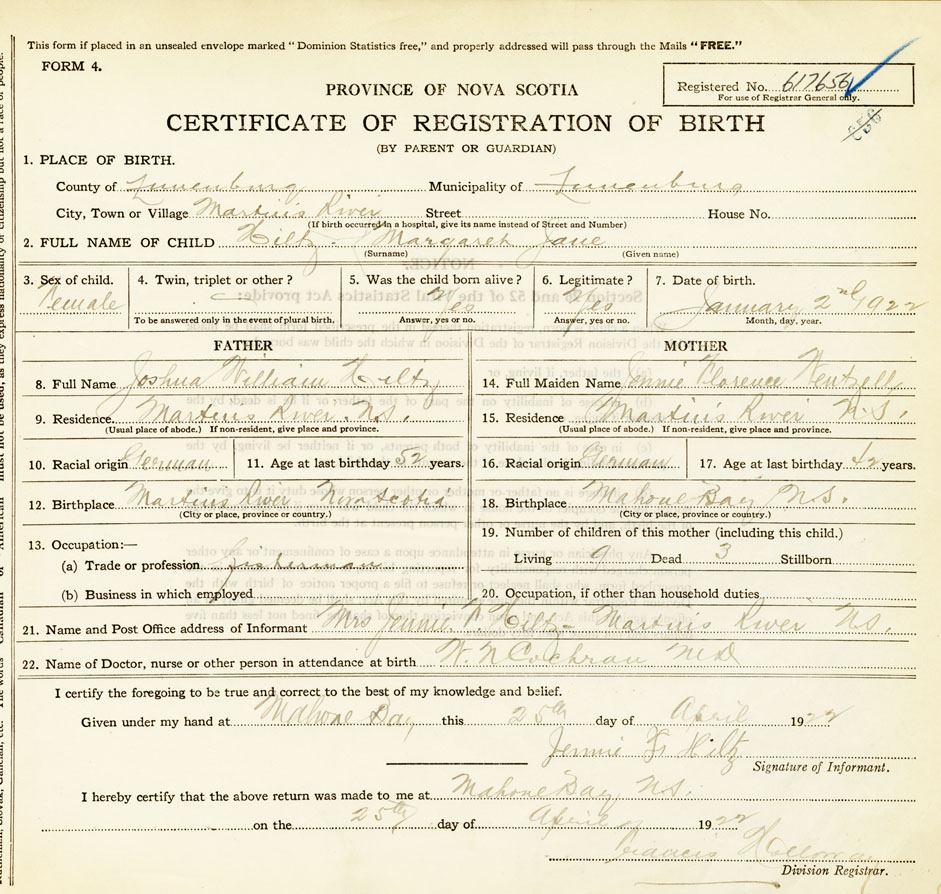 This form if placed in an unsealed envelope marked "Dominion Statistics free," and properly addressed will pass through the Mails "FREE."
FORM 4.
Registered No. 617656
For use of Registrar General only.
656
PROVINCE OF NOVA SCOTIA
CERTIFICATE OF REGISTRATION OF BIRTH
(BY PARENT OR GUARDIAN)
1. PLACE OF BIRTH.
County of Lunenburg Municipality of Lunenburg
City, Town or Village Martins River Street House No.
(If birth occurred in a hospital, give its name instead of Street and Number)
2. FULL NAME OF CHILD Hiltz - Margaret Jane
(Surname) (Given name)
3. Sex of child. 4. Twin, triplet or other? 5. Was the child born alive? 6. Legitimate? 7. Date of birth.
Female — Yes Yes January 2nd 1922
To be answered only in the event of plural birth. Answer, yes or no. Answer, yes or no. Month, day, year.
FATHER
8. Full Name Joshua William Hiltz
9. Residence Martins River. N.S.
(Usual place of abode.) If non-resident, give place and province.
10. Racial origin German 11. Age at last birthday 52 years.
12. Birthplace Martins River Nova Scotia
(City or place, province or country.)
13. Occupation:—
(a) Trade or profession Fisherman
(b) Business in which employed
MOTHER
14. Full Maiden Name Jennie Florence Wentzell
15. Residence Martins River N.S.
(Usual place of abode.) If non-resident, give place and province.
16. Racial origin German 17. Age at last birthday 42 years.
18. Birthplace Mahone Bay N.S.
(City or place, province or country.)
19. Number of children of this mother (including this child.)
Living 9 Dead 3 Stillborn
20. Occupation, if other than household duties
21. Name and Post Office address of Informant Mrs Jennie Hiltz - Martins River N.S.
22. Name of Doctor, nurse or other person in attendance at birth W. N Cochran M.D
I certify the foregoing to be true and correct to the best of my knowledge and belief.
Given under my hand at Mahone Bay this 25th day of April 1922
Jennie F. Hiltz
Signature of Informant.
I hereby certify that the above return was made to me at Mahone Bay N.S.
on the 25th day of April 1922
Francis
Division Registrar.